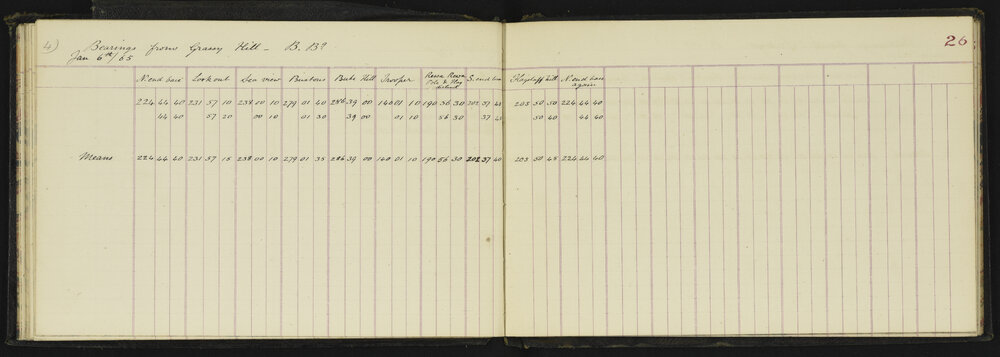 4) Bearings from Grassy Hill - B. B?
Jan 6th/65
26
N. end base Lookout Sea view Buxtons Bute Hill Trooper Rewa Rewa Pole & Flag S. end base Flagstaff hill N. end base again
224 44 40 231 57 10 238 00 10 279 01 40 286 39 00 140 01 10 190 56 30 202 37 40 203 50 50 224 44 40
44 40 57 20 00 10 01 30 39 00 01 10 56 30 37 40 50 40 44 40
Means 224 44 40 231 57 15 238 00 10 279 01 35 286 39 00 140 01 10 190 56 30 202 37 40 203 50 45 224 44 40